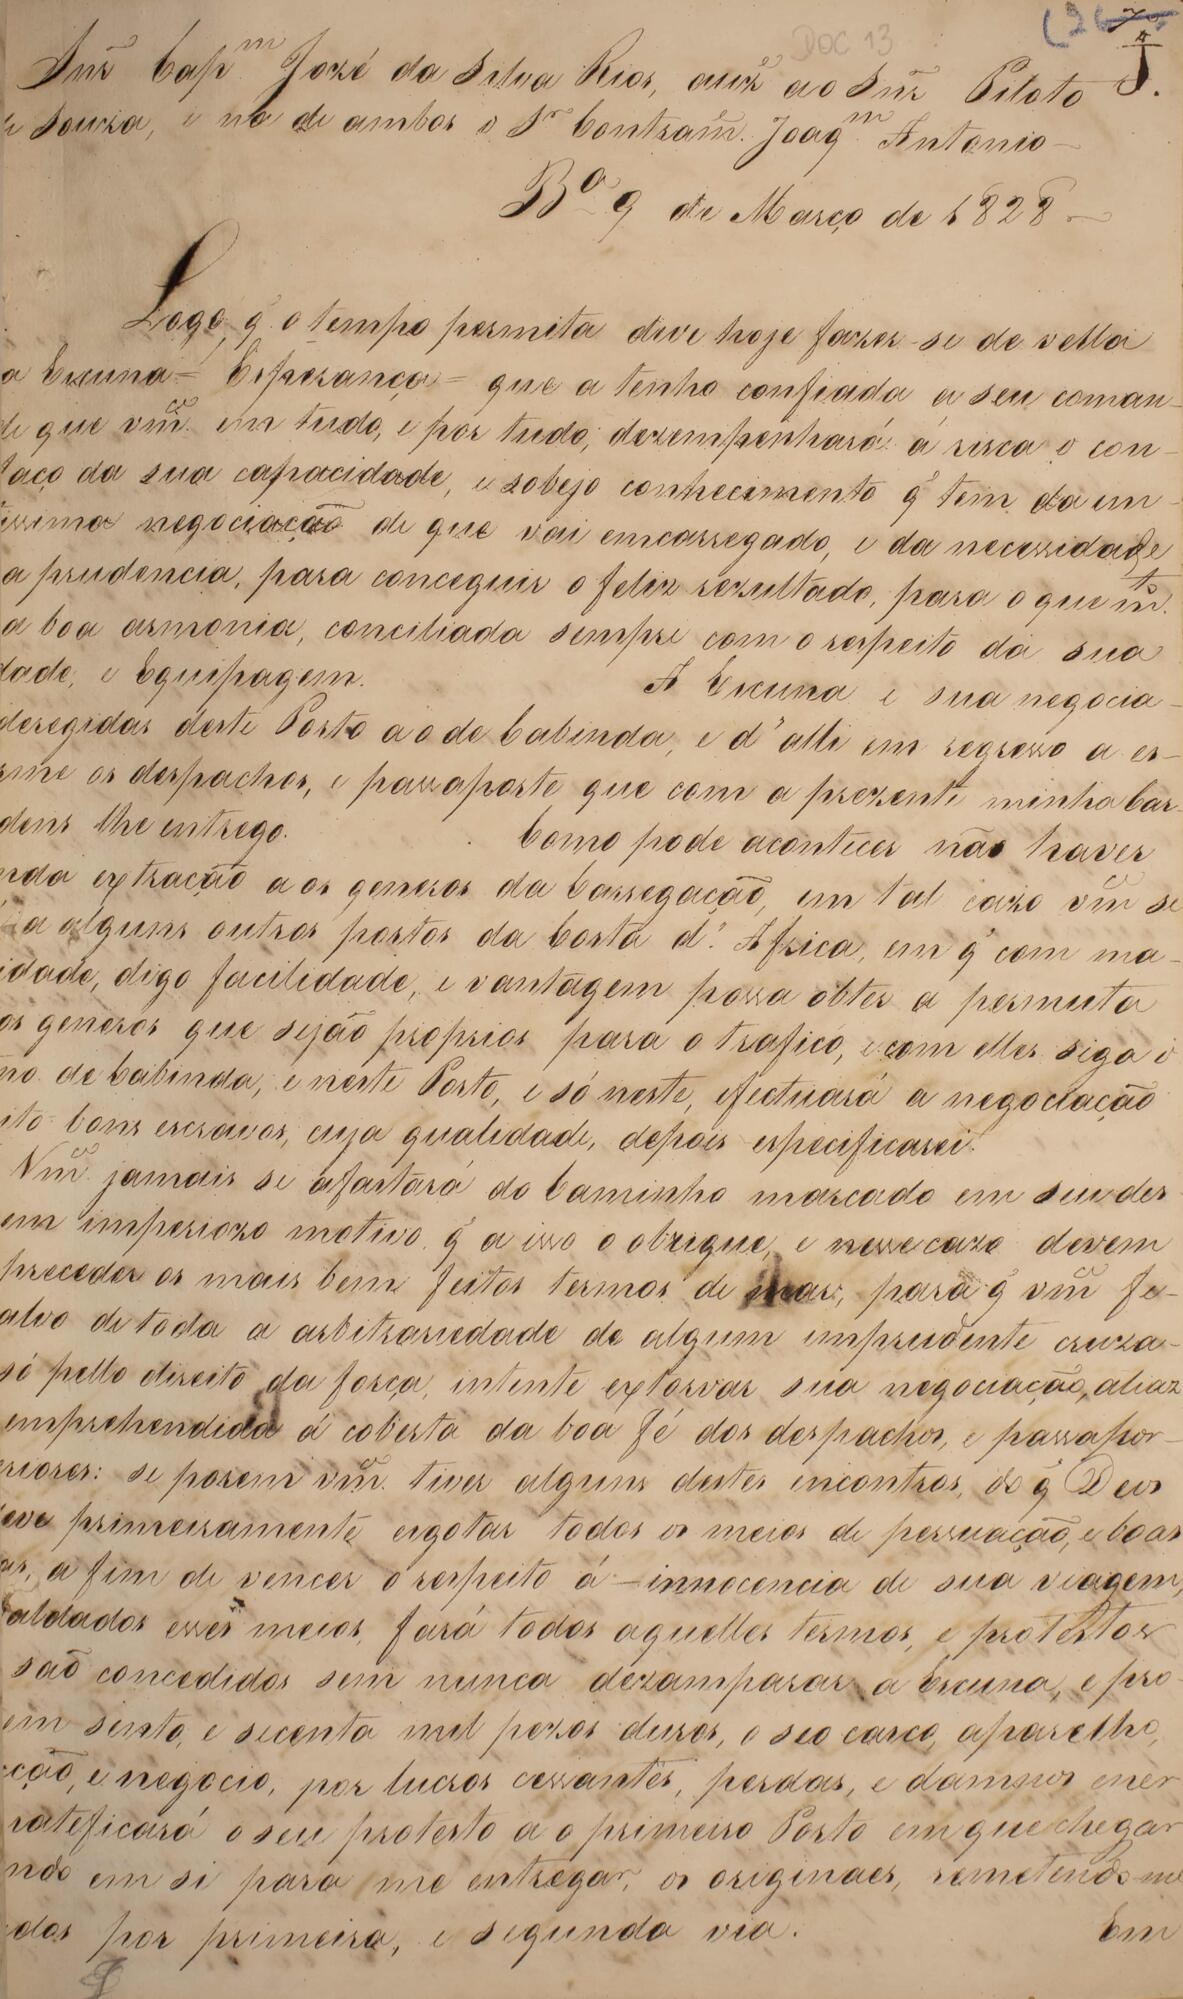 (26
DOC 13
Snr̃ Capm José da Silva Rios, auzẽ ao Snr̃ Piloto
e Souza, e na de ambos o Sr Contram̃. Joaqm Antonio —
Ba 9 de Março de 1828 —
Logo q̃ o tempo permita deve hoje fazer-se de vella
a Escuna = Esperança = que a tenho confiada a seu coman-
de que vm̃ce em tudo, e por tudo, dezempenhará á risca o con-
faço da sua capacidade, e sobejo conhecimento q̃ tem da em-
issima negociação de que vai emcarregado, e da necessidade
a prudencia, para conceguir o feliz rezultado, para o que m̃to
a boa armonia, conciliada sempre com o respeito da sua
dade, e Equipagem. A Escuna e sua negocia-
deregidas deste Porto ao de Cabinda, e d'alli em regresso a es-
rme os despachos, e passaporte que com a prezente minha Car-
dens lhe entrego. Como pode acontecer não haver
nda extração aos generos da Carregação, em tal cazo vm̃ce se
a alguns outros portos da Costa d'Africa, em q̃ com ma-
idade, digo facilidade, e vantagem possa obter a permuta
os generos que sejão proprios para o trafico, e com elles siga o
no de Cabinda, e neste Porto, e só neste, efectuará a negociação
ito bons escravos, cuja qualidade, depois especificarei.
Vm̃ce jamais se afastará do Caminho marcado em seu des-
em imperiozo motivo q̃ a isso o obrigue, e nesse cazo devem
preceder os mais bem feitos termos de mar, para q̃ vm̃ce fe-
alvo de toda a arbitrariedade de algum imprudente cruza-
só pello direito da força, intente extorvar sua negociação, aliaz
emprehendida á coberta da boa fé dos despachos, e passapor-
riores: se porem vm̃ce tiver alguns destes encontros, do q̃ Deos
eve primeiramente esgotar todos os meios de persuação, e boas
as, a fim de vencer o respeito á — innocencia de sua viagem,
aldados esses meios, fará todos aquelles termos, e protestos
são concedidos sem nunca dezamparar a Escuna, e pro-
em sento, e secenta mil pezos duros, o seo casco, aparelho,
cção, e negocio, por lucros cessantes, perdas, e damnos
ratificará o seu protesto ao primeiro Porto em que chegar
ndo em si para me entregar, os originaes, remetendo-me
dos por primeira, e segunda via. Em